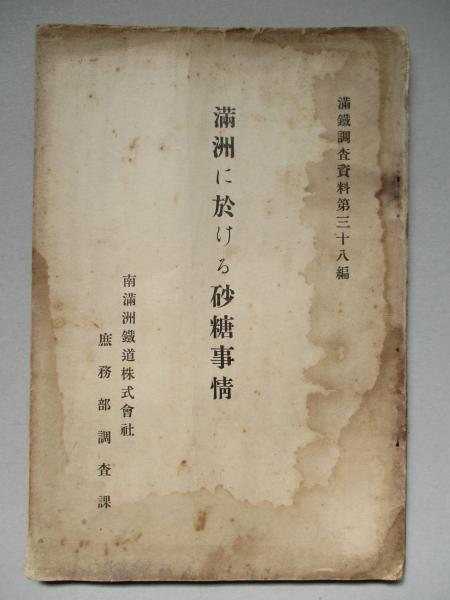 滿鐵調査資料第三十八編
滿洲に於ける砂糖事情
南滿洲鐵道株式會社
庶務部調査課